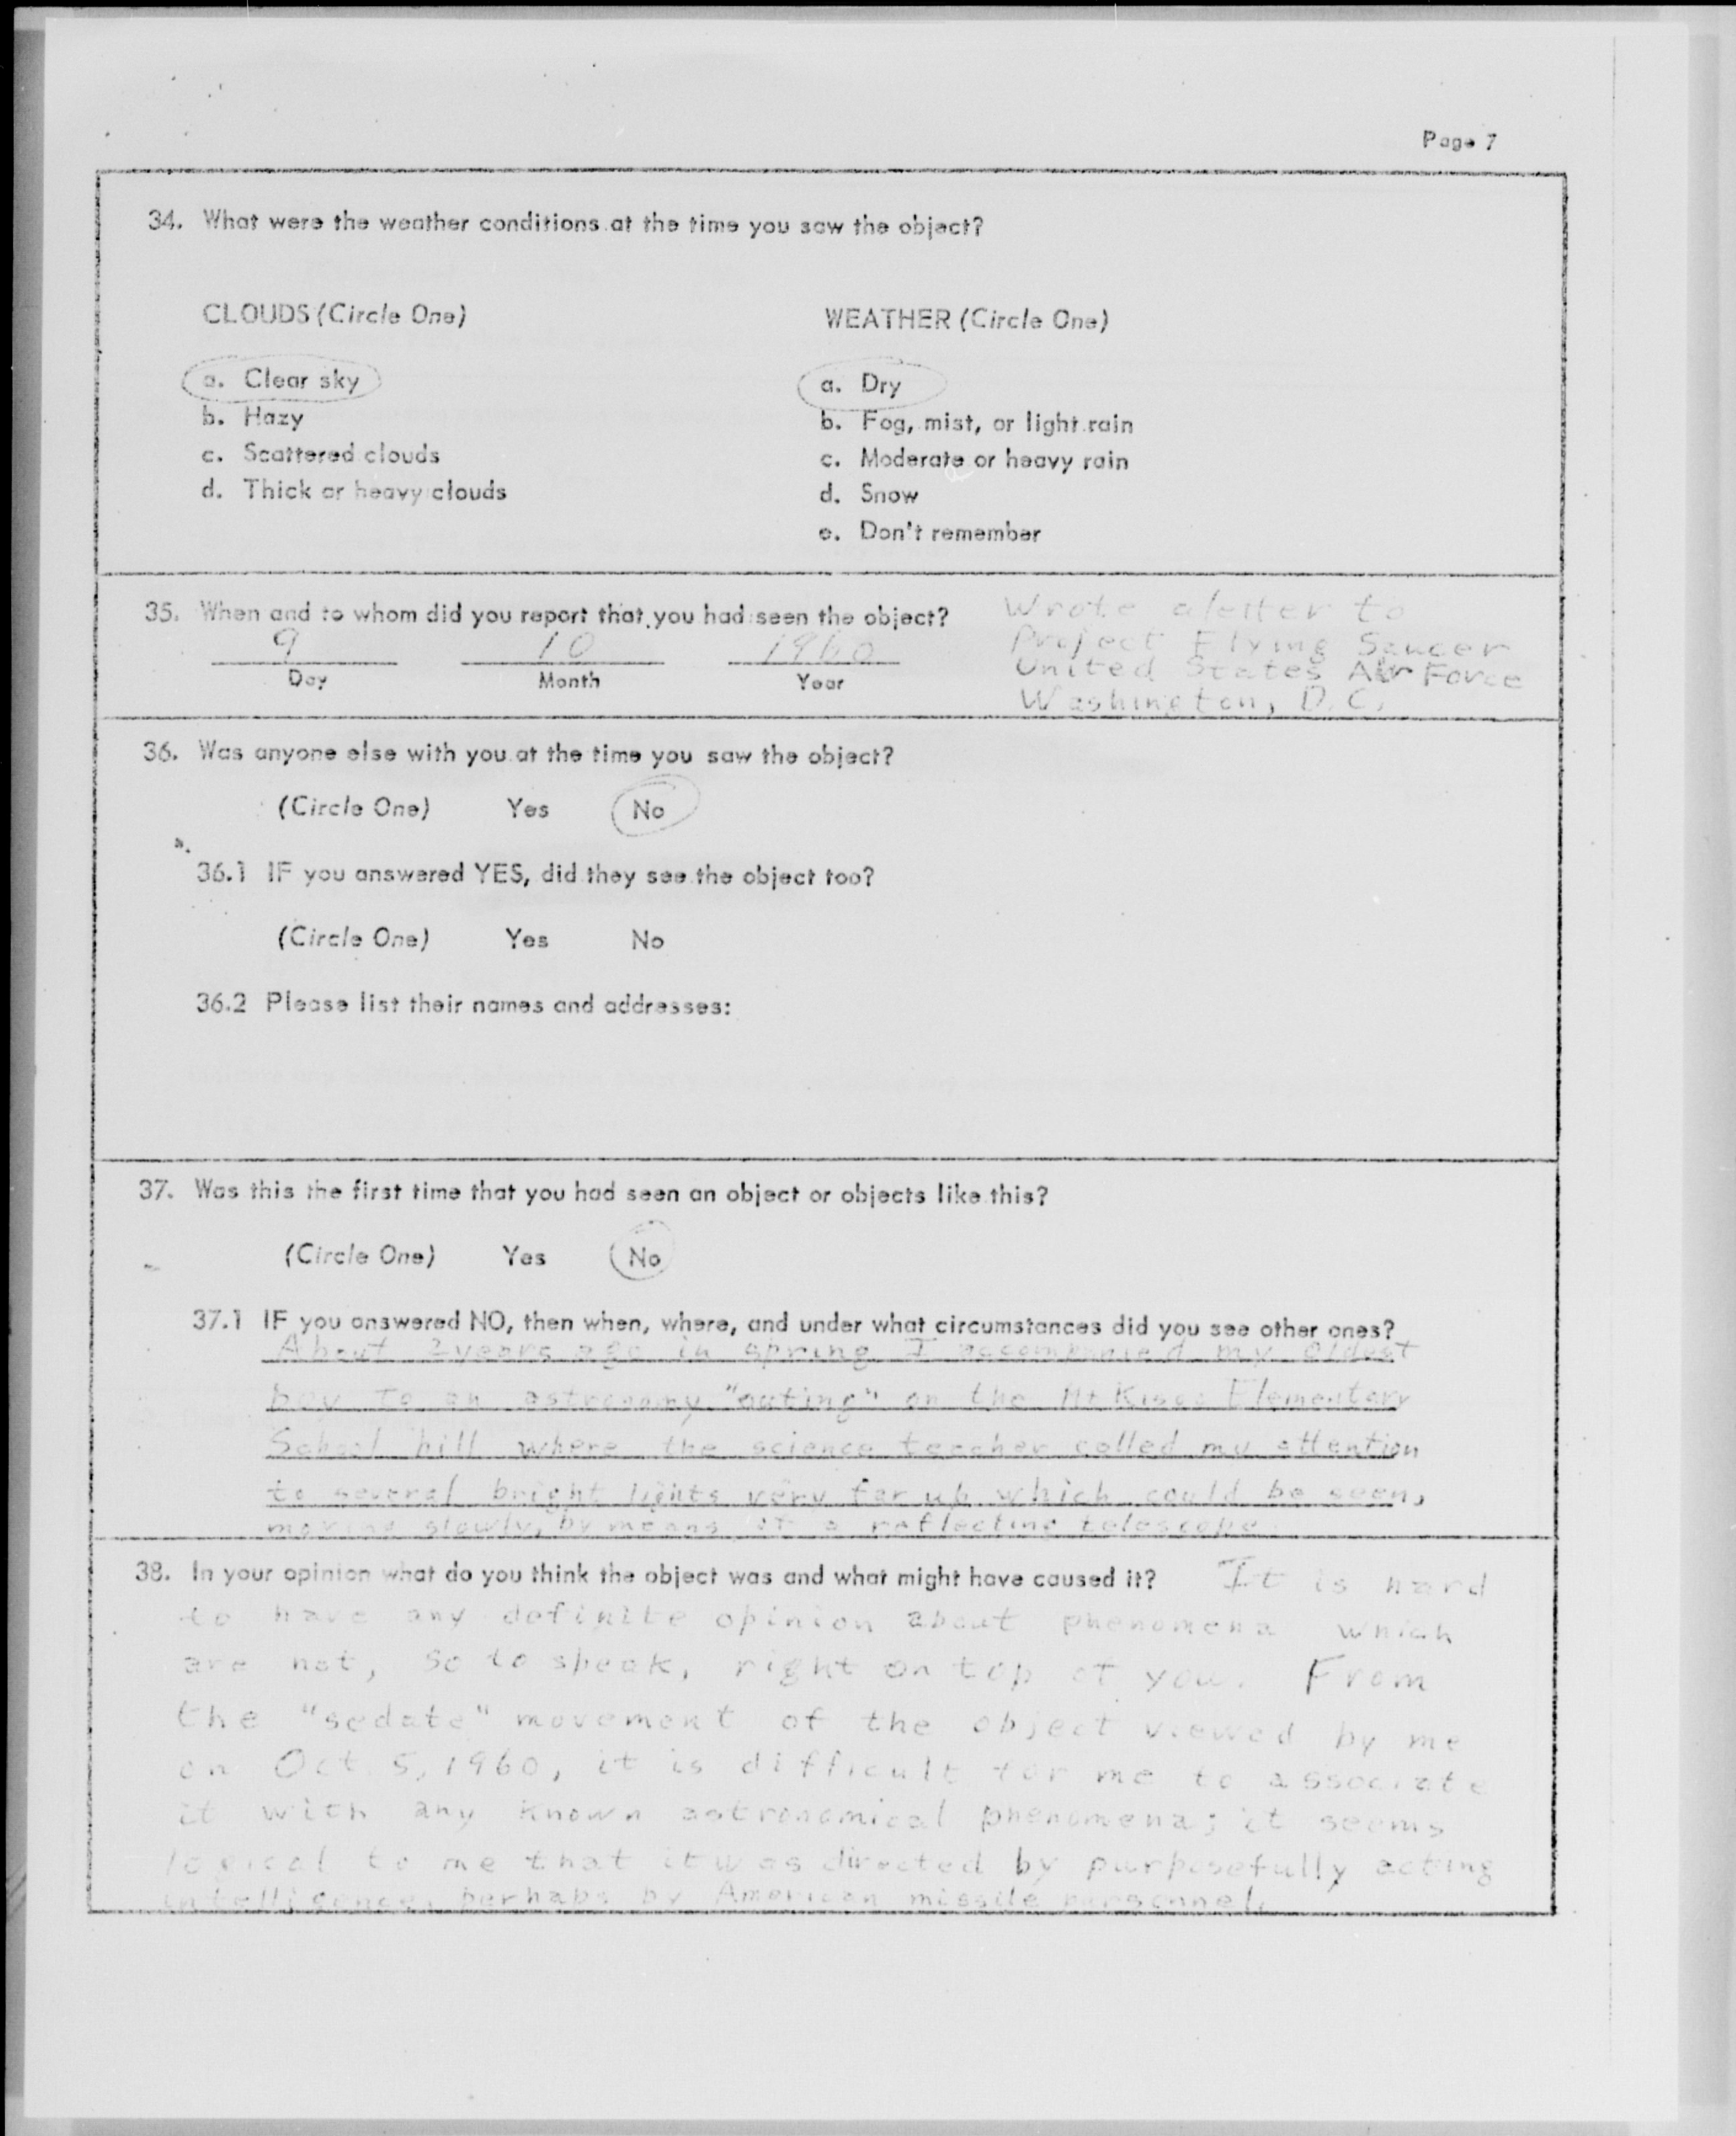 Page 7
34. What were the weather conditions at the time you saw the object?
CLOUDS (Circle One) WEATHER (Circle One)
a. Clear sky a. Dry
b. Hazy b. Fog, mist, or light rain
c. Scattered clouds c. Moderate or heavy rain
d. Thick or heavy clouds d. Snow
e. Don't remember
35. When and to whom did you report that you had seen the object? Wrote a letter to
9 10 1960 Project Flying Saucer
Day Month Year United States Air Force
Washington, D.C.
36. Was anyone else with you at the time you saw the object?
(Circle One) Yes No
36.1 IF you answered YES, did they see the object too?
(Circle One) Yes No
36.2 Please list their names and addresses:
37. Was this the first time that you had seen an object or objects like this?
(Circle One) Yes No
37.1 IF you answered NO, then when, where, and under what circumstances did you see other ones?
About 2 years ago in spring I accompanied my oldest
boy to an astronomy "outing" on the Mt Kisco Elementary
School hill where the science teacher called my attention
to several bright lights very far up which could be seen,
moving slowly, by means of a reflecting telescope.
38. In your opinion what do you think the object was and what might have caused it? It is hard
to have any definite opinion about phenomena which
are not, so to speak, right on top of you. From
the "sedate" movement of the object viewed by me
on Oct 5, 1960, it is difficult for me to associate
it with any known astronomical phenomena; it seems
logical to me that it was directed by purposefully acting
intelligence, perhaps by American missile personnel.